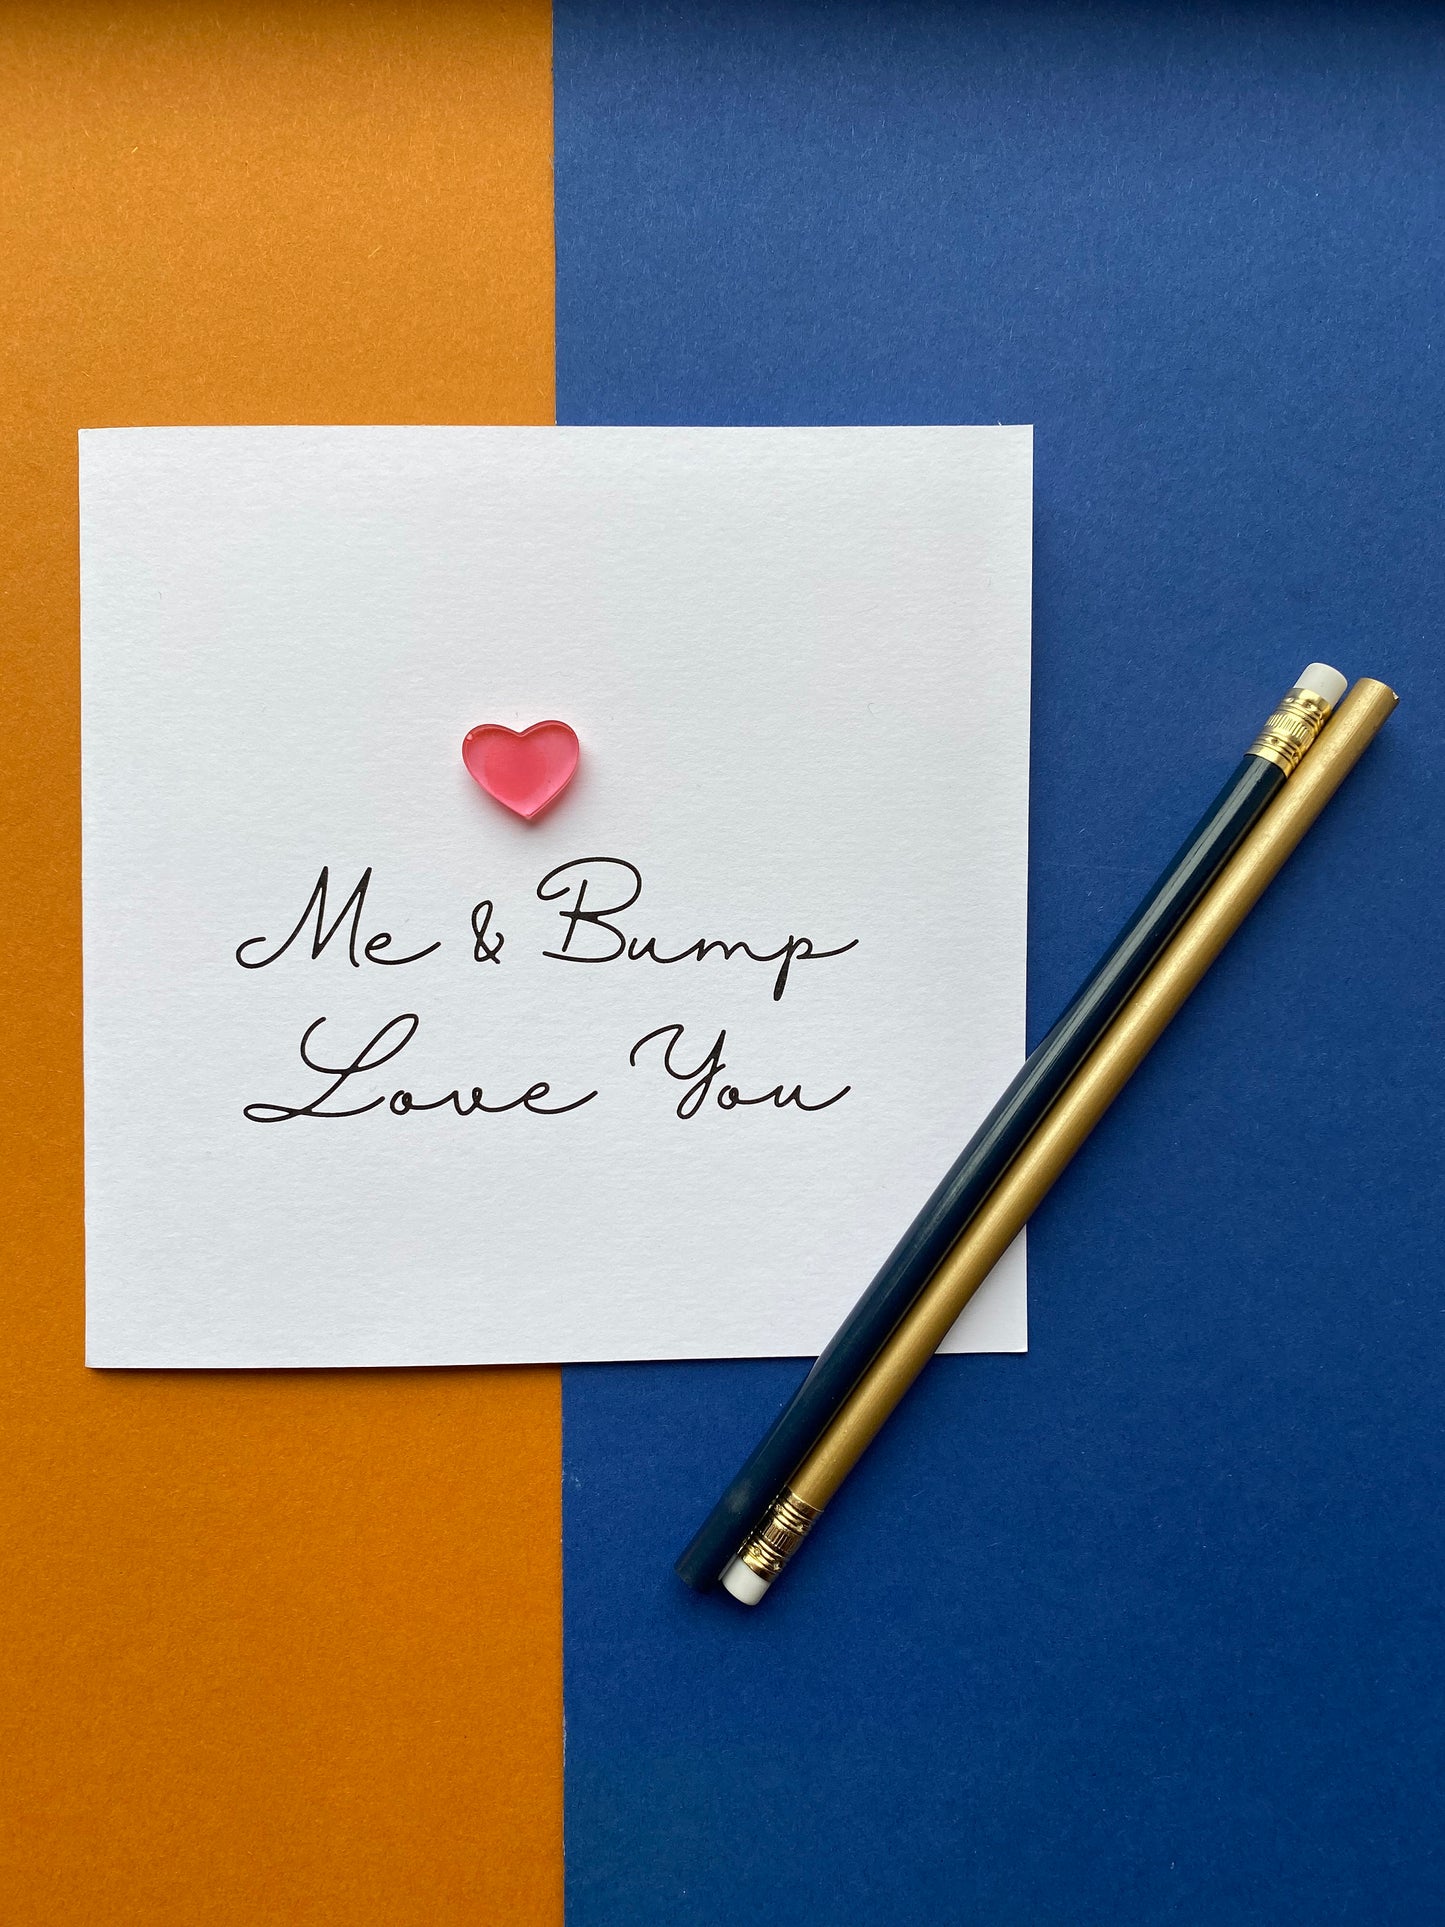 Me & Bump
Love You